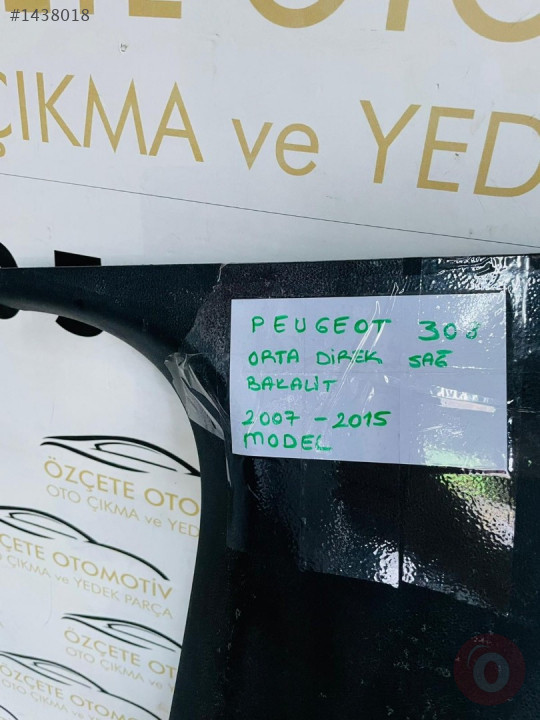 #1438018
ÇIKMA ve YED
PEUGEOT 308
ORTA DİREK SAĞ
BAKALİT
2007 - 2015
MODEL
ÖZÇETE OTO
OTO ÇIKMA ve YED
ÇETE OTOMOTİV
ÇIKMA ve YEDEK PARÇA
ÖZÇETE OTO
OTO ÇIKMA ve YE
ÇETE OTOMOTİV
ÇIKMA ve YEDEK PARÇA